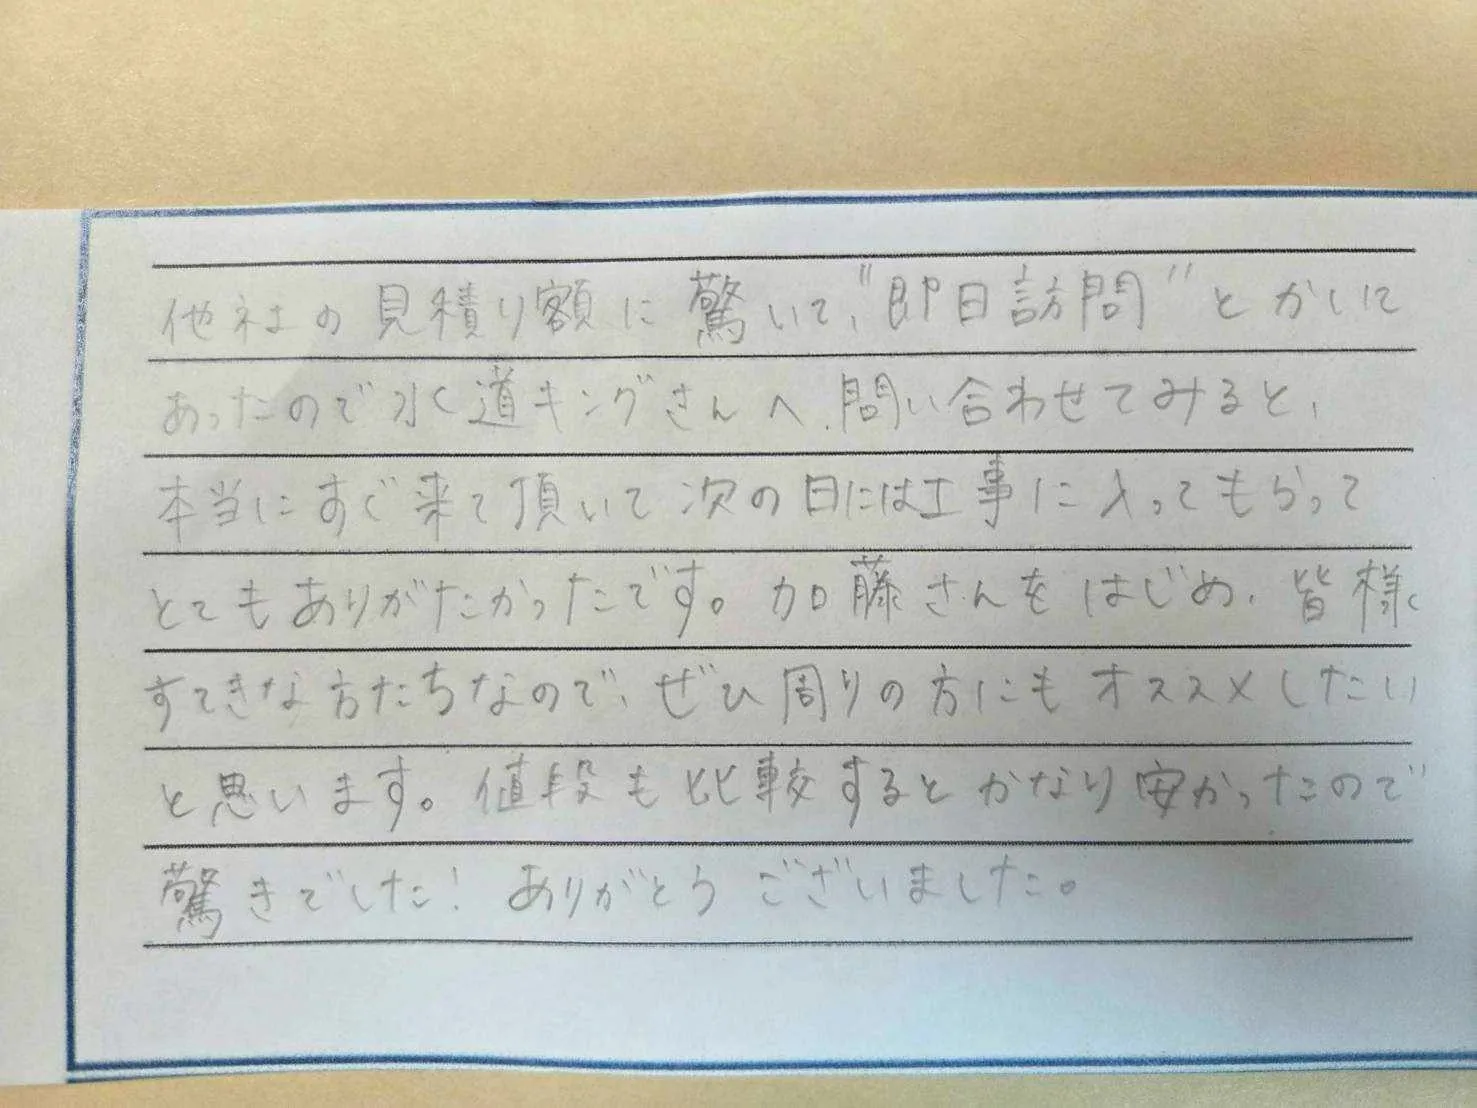 他社の見積り額に驚いて、"即日訪問"とかいて
あったので水道キングさんへ、問い合わせてみると、
本当にすぐ来て頂いて次の日には工事に入ってもらって
とてもありがたかったです。加藤さんをはじめ、皆様
すてきな方たちなので、ぜひ周りの方にもオススメしたい
と思います。値段も比較するとかなり安かったので
驚きでした!ありがとうございました。